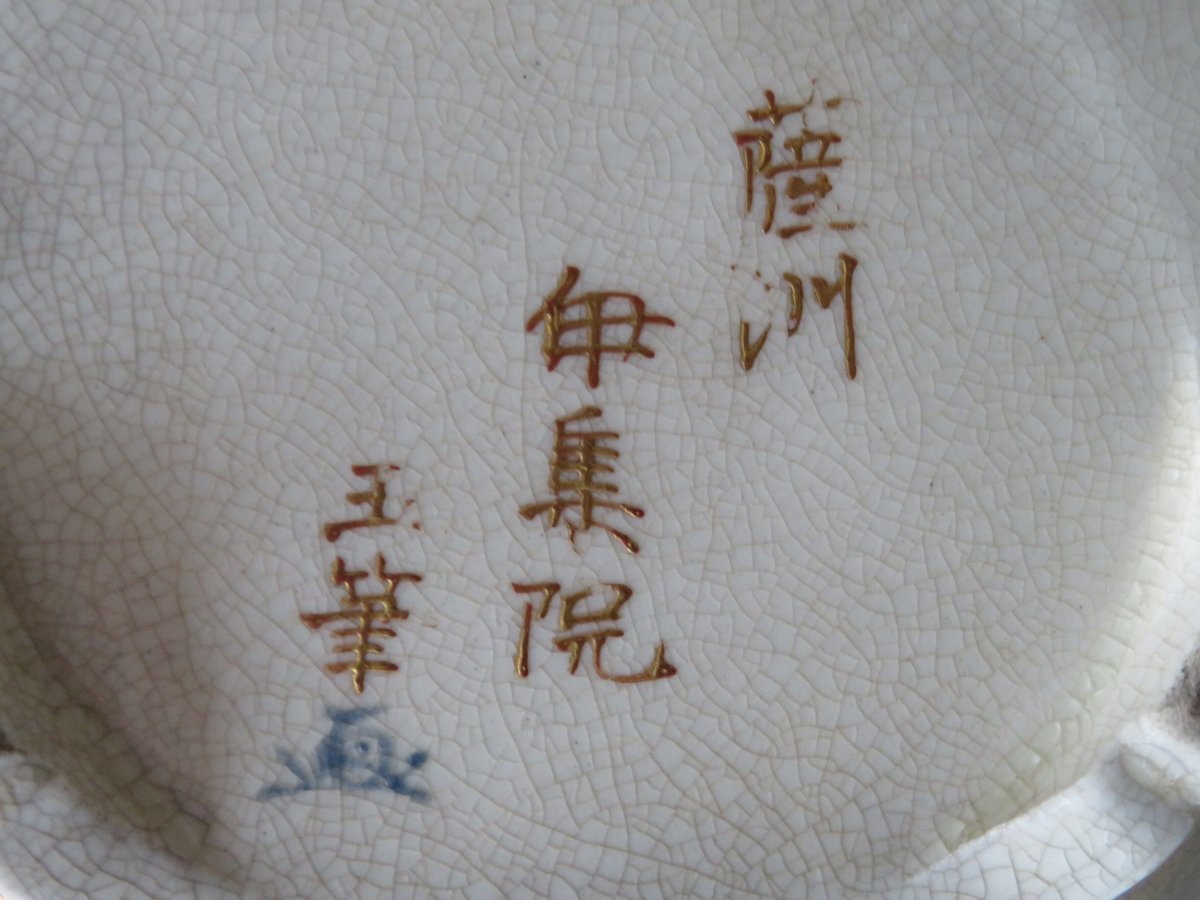 薩洲
伊集院
玉筆